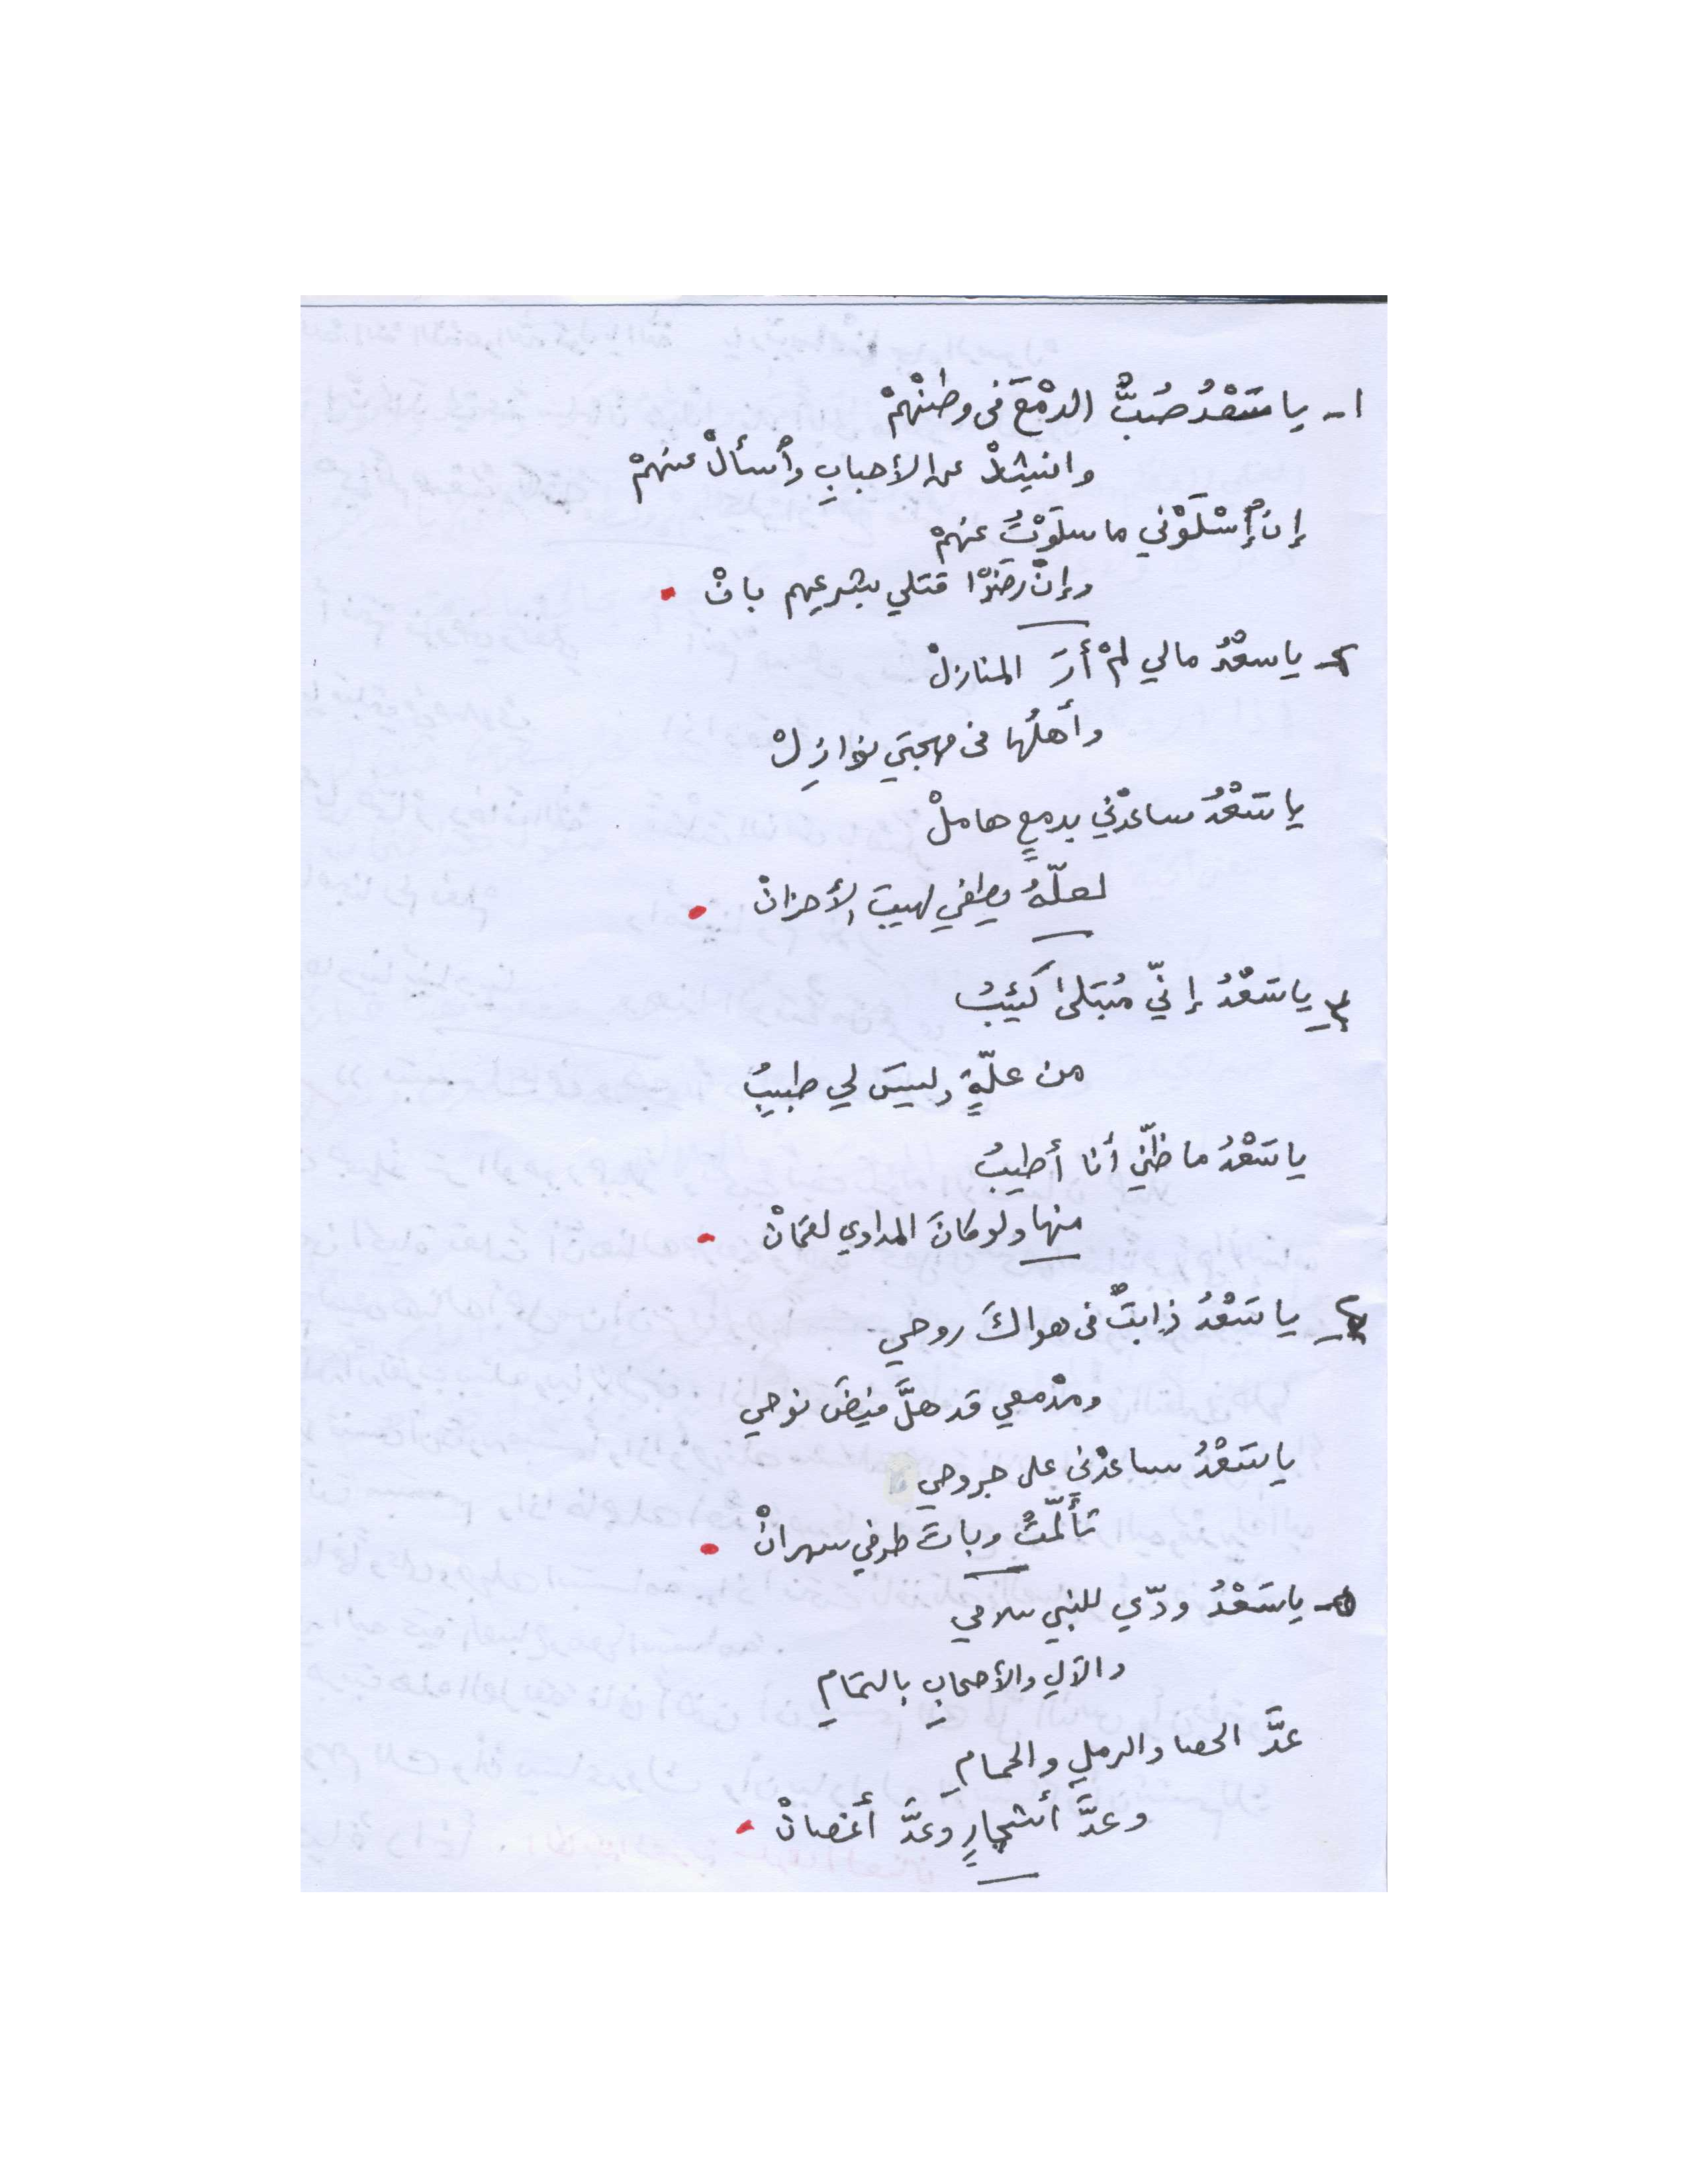 ١- يا سَعْدُ صُبَّ الدمْعَ فى وطنْهمْ
وانشِدْ عن الأحبابِ وأسألْ عنهمْ
إن أسْلَوْني ما سلَوْتُ عنهمْ
وإنْ رضَوْا قتلي بشرعهم بانْ
٢- يا سعْدُ مالي لمْ أرَ المنازلْ
وأهلُها فى مهجتي نوازِلْ
يا سَعْدُ ساعدْني بدمعٍ هاملْ
لعلّهُ يطفي لهيبَ الأحزانْ
٣- يا سَعْدُ إنّي مُبَتلىً كئيبُ
من علّةٍ وليسَ لي طبيبُ
يا سَعْدُ ما ظنّي أنا أطيبُ
منها ولو كانَ المداوي لقمانْ
٤- يا سَعْدُ ذابتْ فى هواكَ روحي
ومدْمعي قد هلَّ فيضَ نوحي
يا سَعْدُ ساعدْني على جروحي
تألّمتْ وباتَ طرفي سهرانْ
٥- يا سَعْدُ ودّي للنبي سلامي
والآلِ والأصحابِ بالتمامِ
عدَّ الحصا والرملِ والحمامِ
وعدَّ أشجارٍ وعدَّ أغصانْ